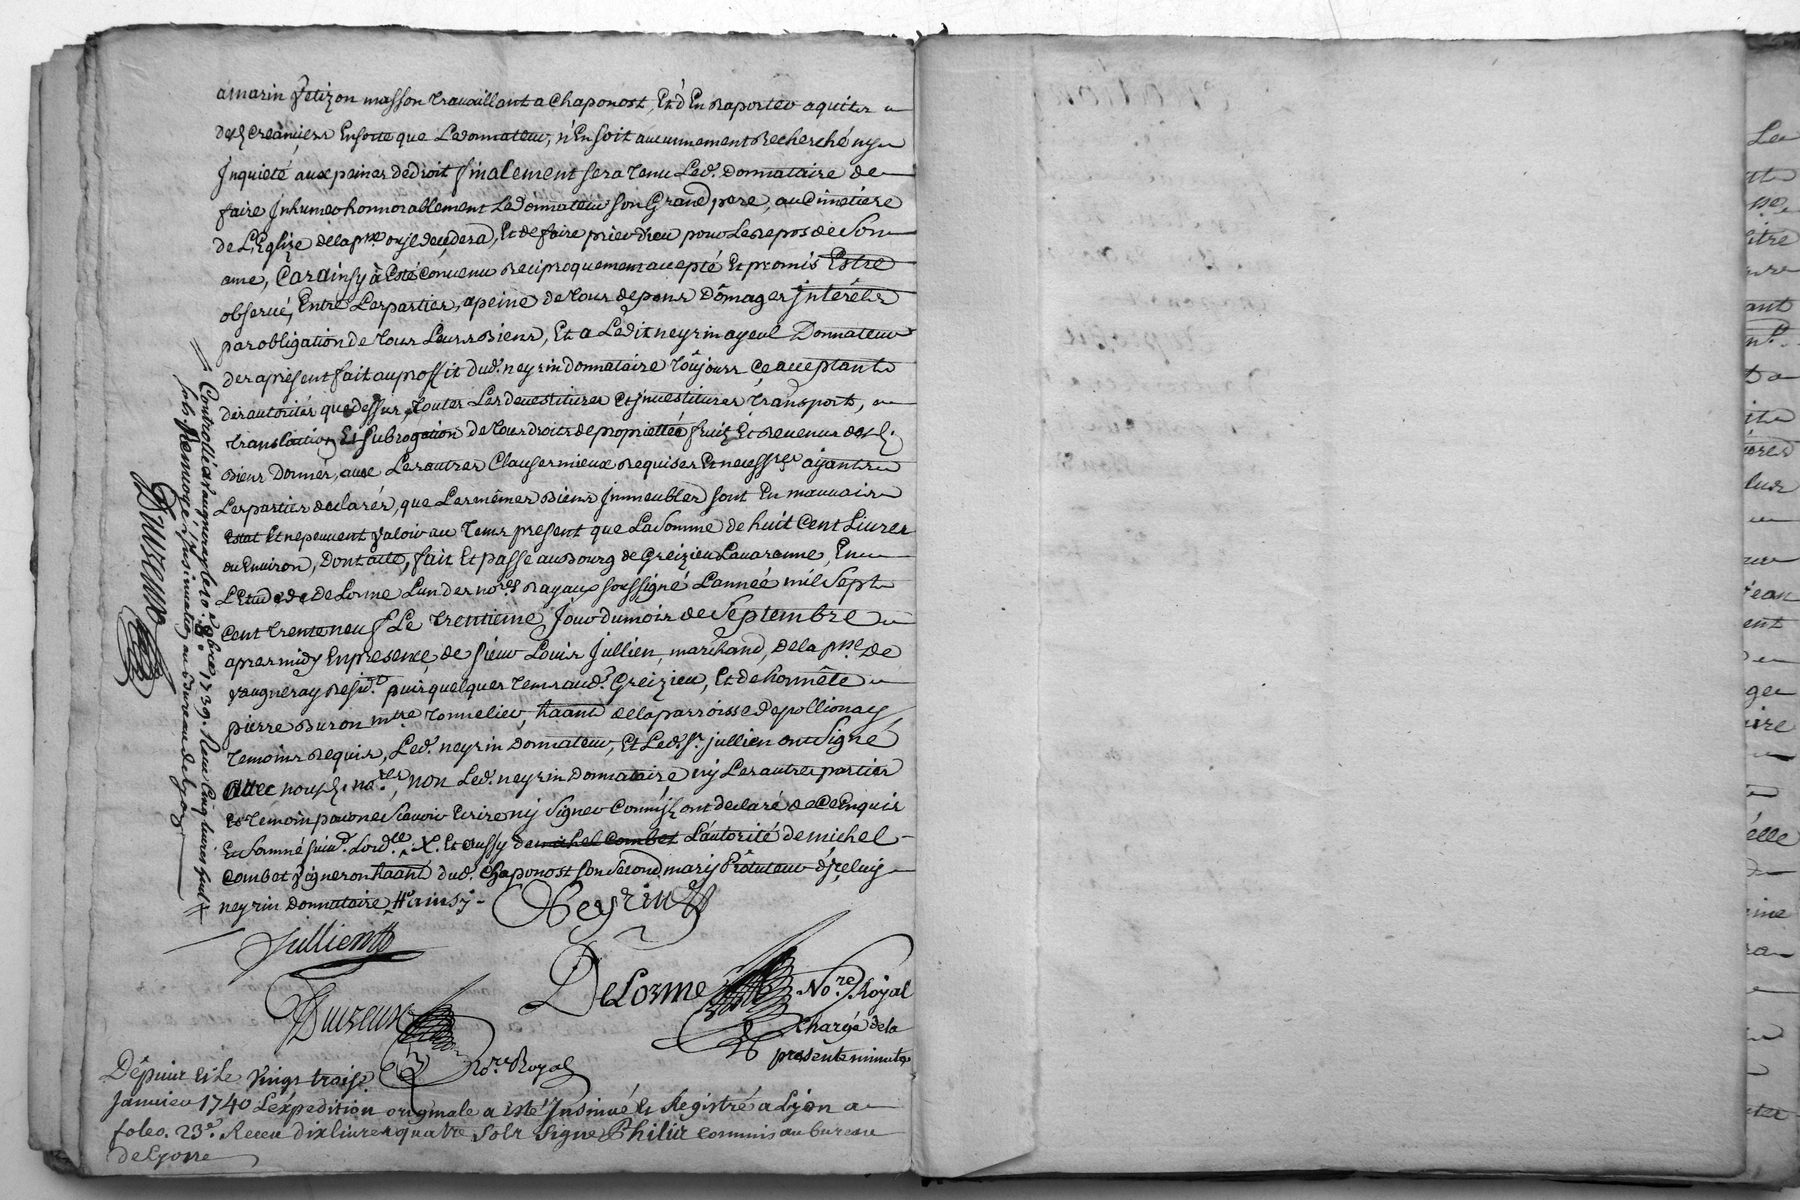 amarin fetizon masson travaillant a Chaponost, Et d'En raporter aquits
desd. Creanciers Ensorte que Ledonnateur, n'En soit aucunnement Recherché ny
Inquieté aux peines de droit finalement sera tenu Led. donnataire de
faire Inhumer honnorablement Le donnateur son Grand pere, au Cimetiere
de L'Eglize dela psse ou il decedera, Et de faire prier dieu pour Le repos de Son
ame, Car ainsy à Esté Convenu Reciproquement accepté Et promis Estre
observé, Entre Les parties, a peine de tous depens Dômages Intérêts
par obligation de tous Leurs Biens, Et a Ledit neyrin ayeul Donnateur
des apresent fait au proffit dud. neyrin donnataire toûjours Ce acceptant
des autorités que dessus, toutes Les devestitures et investitures transports,
translation Et subrogation de tous droits de proprietté fruits Et Revenus desd.
Biens Donnés, avec Les autres Clauses mieux Requises Et necessres ayants
Les parties declarés, que Les mêmes Biens Immeubles sont En mauvais
Estat Et ne peuvent valoir au tems present que La Somme de huit Cent Livres
ou Environ, Dont acte, fait Et passé au Bourg de Greizieu Lavarenne, En
L'Etude de DeLorme L'un des nores Royaux soussigné L'année mil Sept
Cent trente neuf Le trentieme Jour du mois de Septembre
apres midy En presence, de sieur Louis Jullien, marchand, de la psse de
vaugneray Residt puis quelques tems aud. Greizieu, Et de honnête
pierre Buron mtre tonnelier, haant de la parroisse de pollionay
temoins Requis, Led. neyrin Donnateur, Et Led. Sr. jullien ont Signé
Avec nousd. nores, non Led. neyrin Donnataire ny Les autres parties
Et temoin pour ne Scavoir Ecrire ny Signer Comm'ils ont declaré de Ce Enquis
En Sommé suivt. Lordce. X. Et aussy de michel Combet L'autorité de michel
Combet vigneron haant dud. Chaponost son Second mary Protuteur d'Iceluy
neyrin donnataire #ainsy
Neyrin
Jullien
DeLorme Nore. Royal
Chargé de la
presente minute
Duvreux nore. Royal
Dépuis Et Le vingt trois
Janvier 1740 L'expedition originale a esté Insinué Et Registré a Lyon
foleo. 23e. Receu dix livres quatre sols Signé Commis au bureau
de Lyon
Controllé a vaugneray le 10. 8bre 1739. Receu Cinq livres huit
sols Renvoyé à l'insinuation au bureau de Lyon
Duvreux